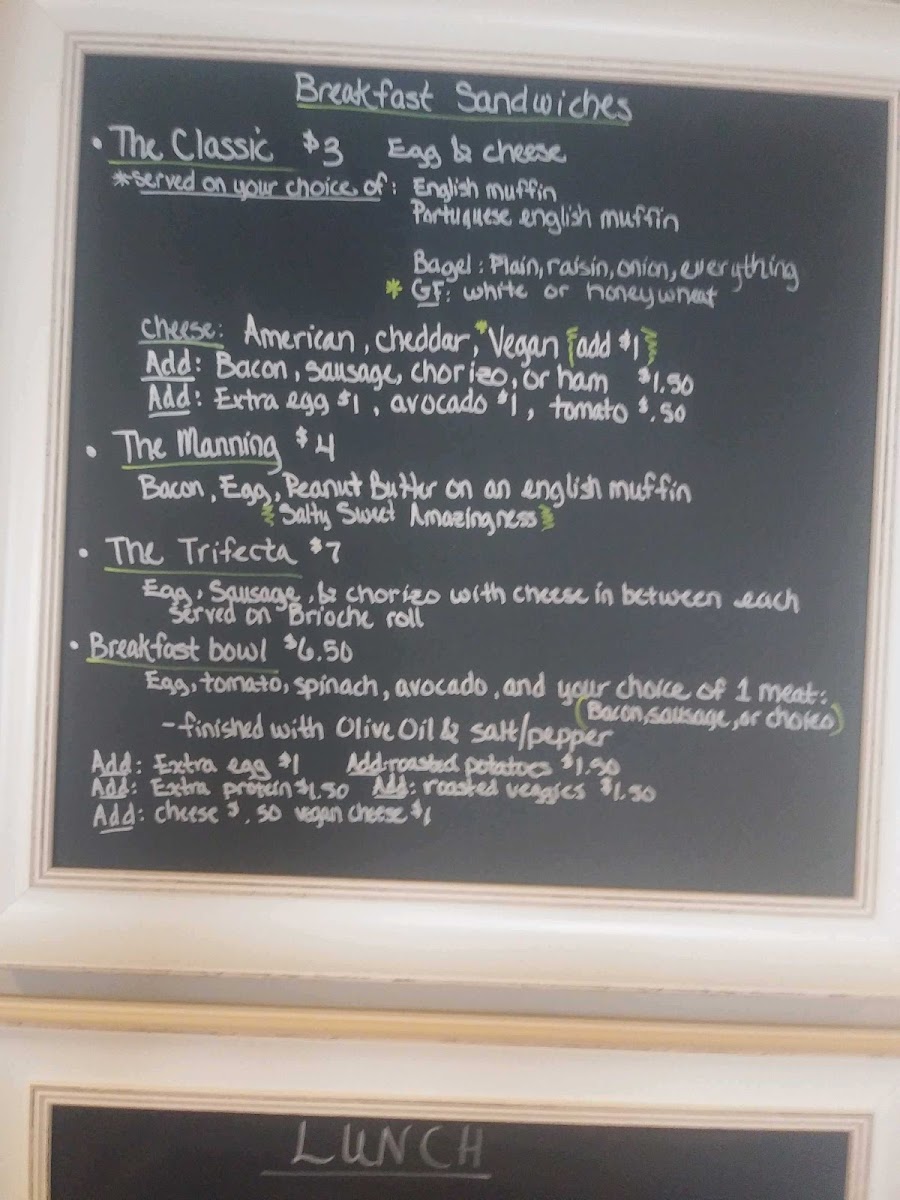 Breakfast Sandwiches
• The Classic $3 Egg & cheese
*served on your choice of: English muffin
Portuguese english muffin
Bagel: Plain, raisin, onion, everything
* GF: white or honeywheat
cheese: American, cheddar, *Vegan {add $1}
Add: Bacon, sausage, chorizo, or ham $1.50
Add: Extra egg $1, avocado $1, tomato $.50
• The Manning $4
Bacon, Egg, Peanut Butter on an english muffin
{Salty Sweet Amazingness}
• The Trifecta $7
Egg, Sausage, & chorizo with cheese in between each
served on Brioche roll
• Breakfast bowl $6.50
Egg, tomato, spinach, avocado, and your choice of 1 meat:
(Bacon, sausage, or choizo)
-finished with Olive Oil & salt/pepper
Add: Extra egg $1 Add: roasted potatoes $1.50
Add: Extra protein $1.50 Add: roasted veggies $1.50
Add: cheese $.50 vegan cheese $1
LUNCH